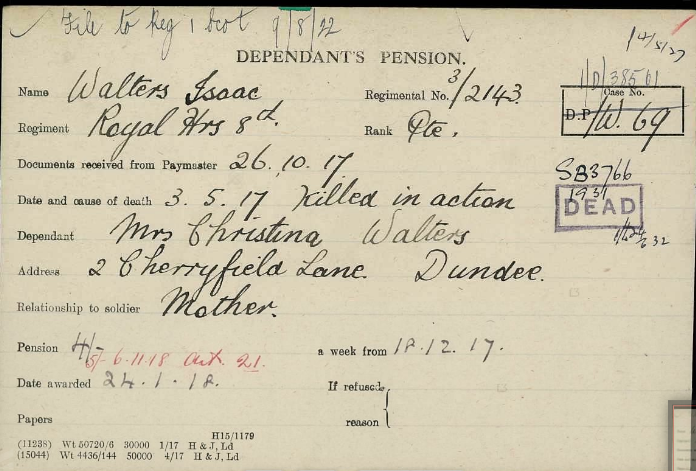 File to Reg 1 Scot 9/8/22
14/5/27
DEPENDANT'S PENSION.
1/D/38561
Name Walters Isaac Regimental No. 3/2143.
Case No.
D.P./W. 69
Regiment Royal Hrs 8d. Rank Pte.
Documents received from Paymaster 26.10.17.
SB3766
1931
Date and cause of death 3.5.17 Killed in action
DEAD
Dependant Mrs Christina Walters
Address 2 Cherryfield Lane. Dundee.
Relationship to soldier Mother.
Pension 4/- a week from 18.12.17.
5/- 6.11.18 Art. 21.
Date awarded 24.1.18. If refused,
reason
Papers
H15/1179
(11238) Wt 50720/6 30000 1/17 H & J, Ld
(15044) Wt 4436/144 50000 4/17 H & J, Ld